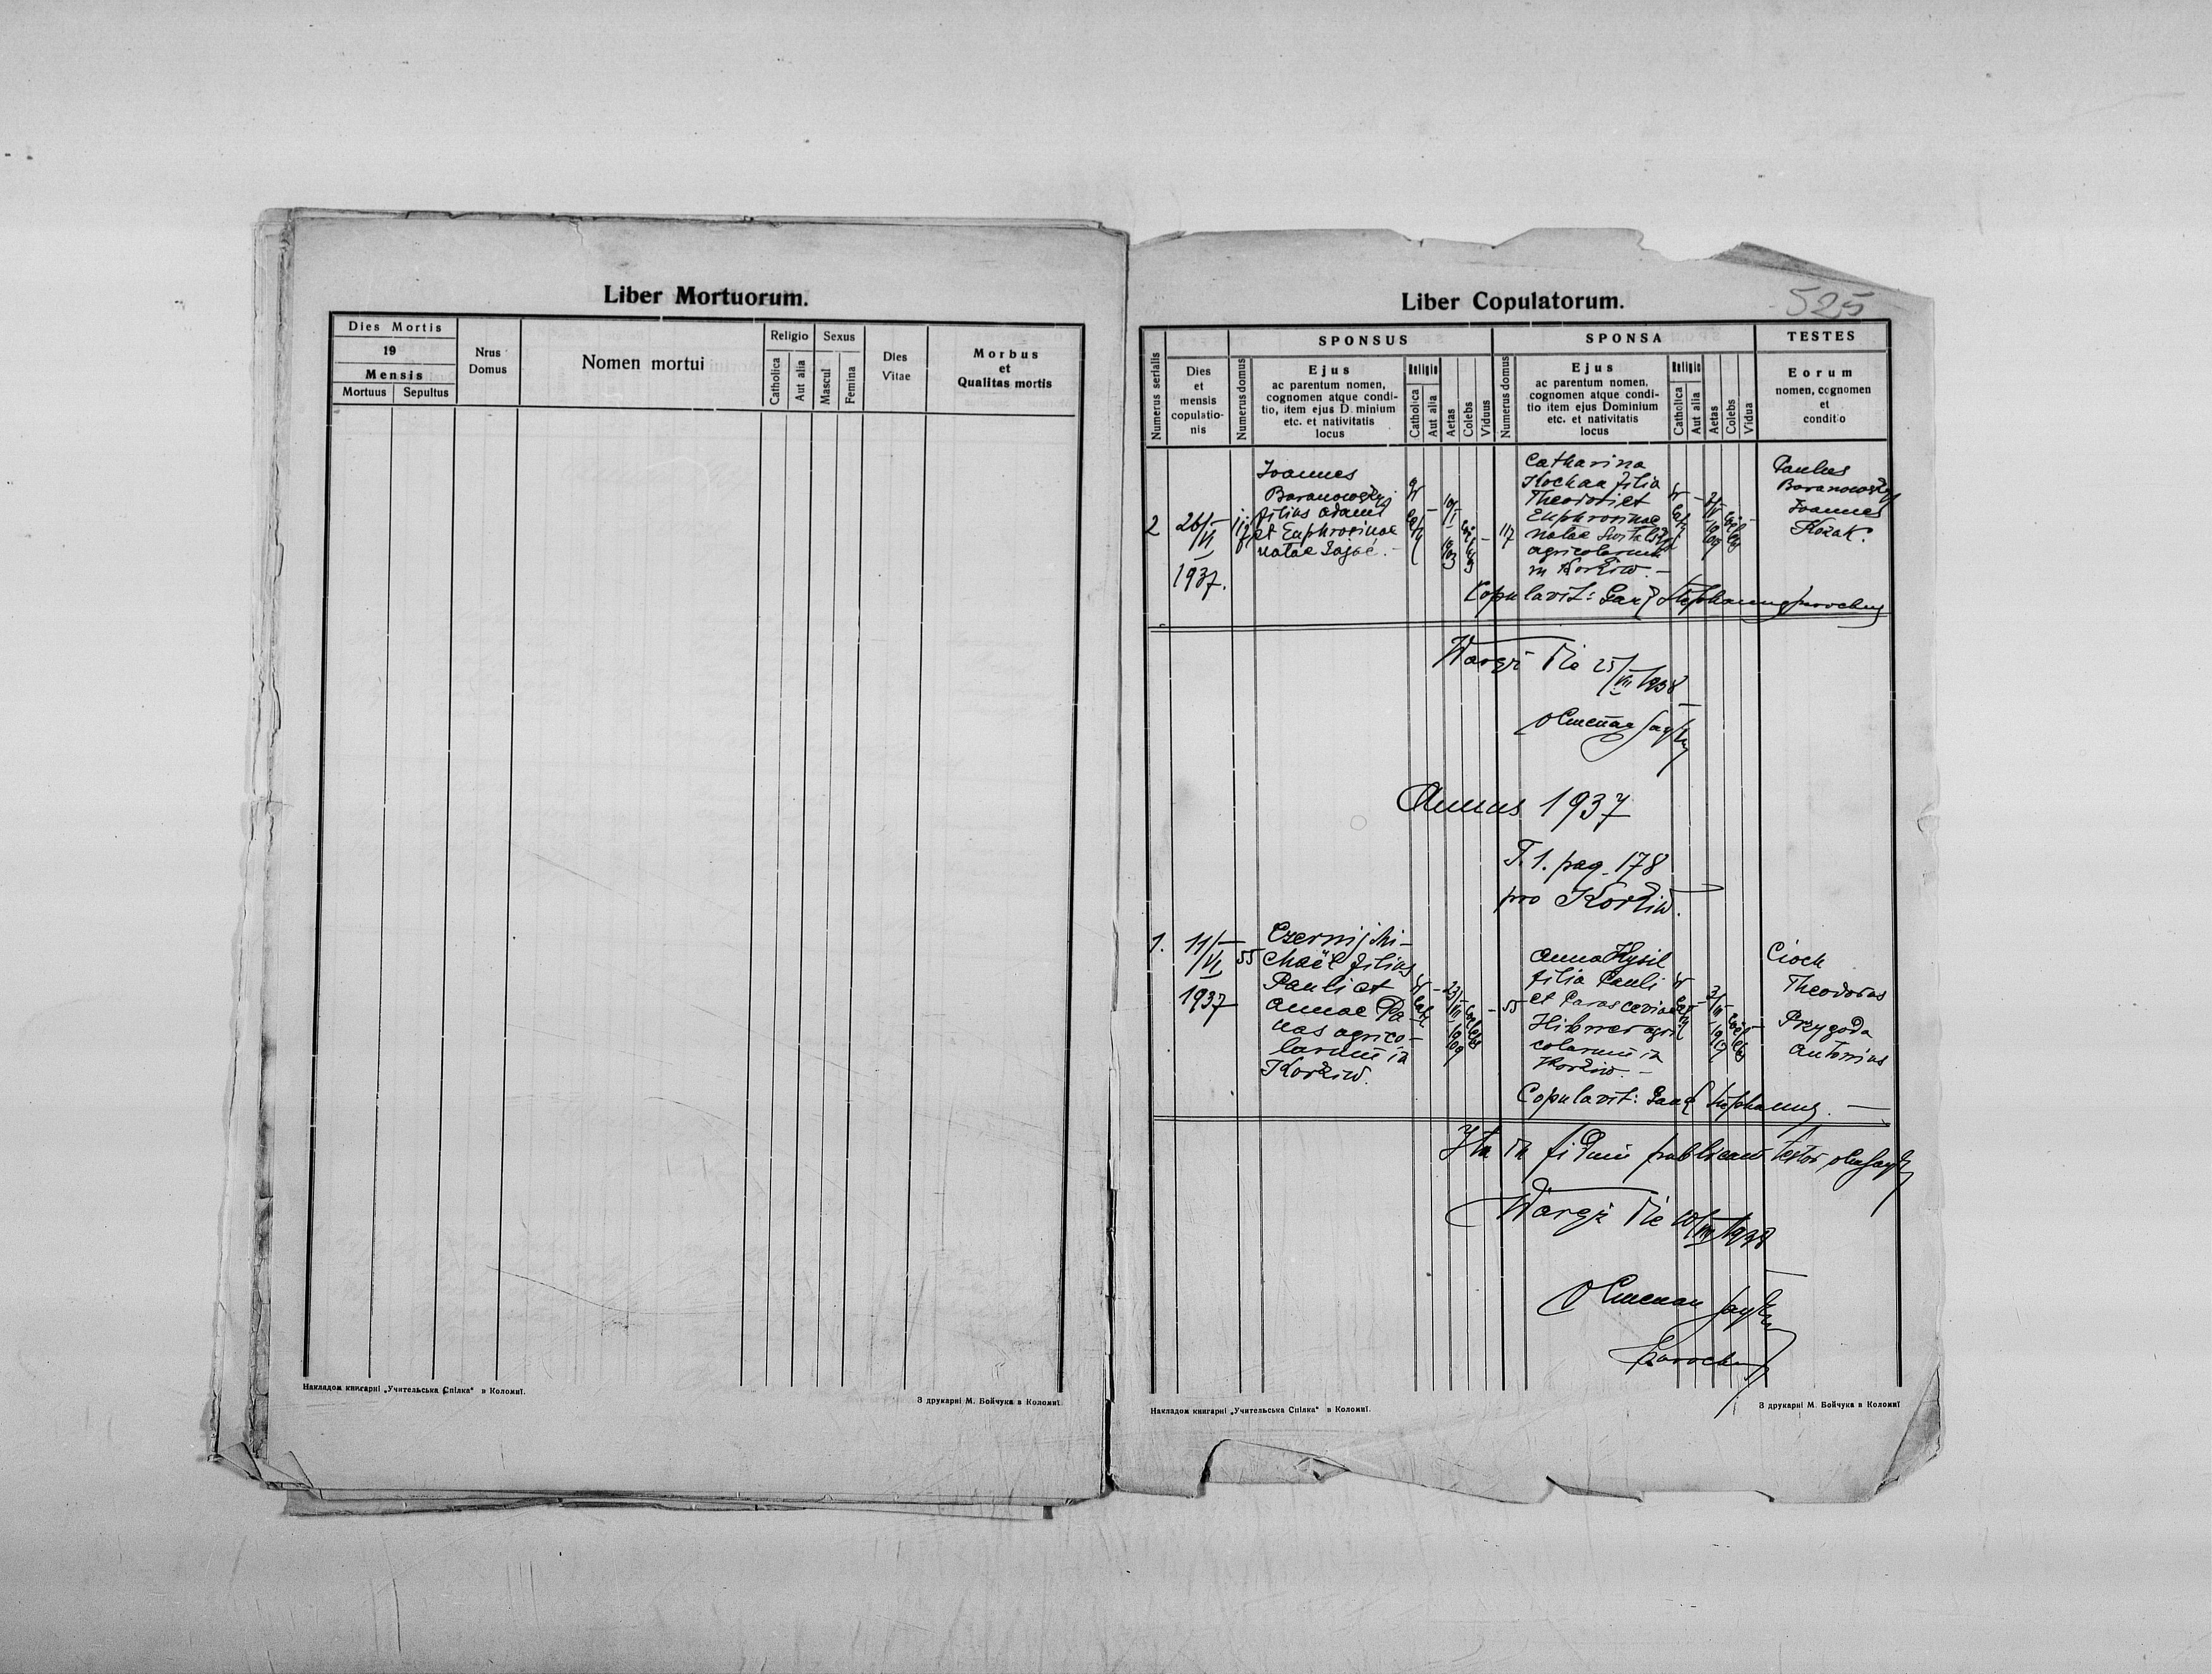 Liber Mortuorum.
Dies Mortis
19
Mensis
Mortuus
Sepultus
Nrus
Domus
Nomen mortui
Religio
Catholica
Aut alia
Sexus
Mascul
Femina
Dies
Vitae
Morbus
et
Qualitas mortis
Накладом книгарні „Учительська Спілка" в Коломиї.
З друкарні М. Бойчука в Коломиї.
525
Liber Copulatorum.
Numerus serialis
Dies
et
mensis
copulatio-
nis
SPONSUS
Numerus domus
Ejus
ac parentum nomen,
cognomen atque condi-
tio, item ejus D minium
etc. et nativitatis
locus
Religio
Catholica
Aut alia
Aetas
Colebs
Viduus
SPONSA
Numerus domus
Ejus
ac parentum nomen,
cognomen atque condi-
tio item ejus Dominium
etc. et nativitatis
locus
Religio
Catholica
Aut alia
Aetas
Colebs
Vidua
TESTES
Eorum
nomen, cognomen
et
conditio
2
26/VI
1937.
Joannes
Baranowskyj
filius Adami
et Euphrosinae
natae Zajać.-
117
Catharina
filia
Theodori et
Euphrosinae
natae
agricolarum
in Korkiw.-
Paulus
Baranowskyj
Joannes
Kozak.
Copulavit: Stephanus parochus
Waręż die 25/VII 1938
Annus 1937
T. 1. pag. 178
pro Korkiw.
1.
11/VI
1937
55
Czernij Mi-
chaël filius
Pauli et
Annae Pa-
nas agrico-
larum in
Korkiw.
23/
1909
55
Anna Kysil
filia Pauli
et Parasceviae
agri
colarum in
Korkiw.-
Cioch
Theodorus
Przygoda
Antonius
Copulavit: Stephanus.
Ita in fidem publicam testor
Waręż die
parochus
Накладом книгарні „Учительська Спілка" в Коломиї.
З друкарні М. Бойчука в Коломиї